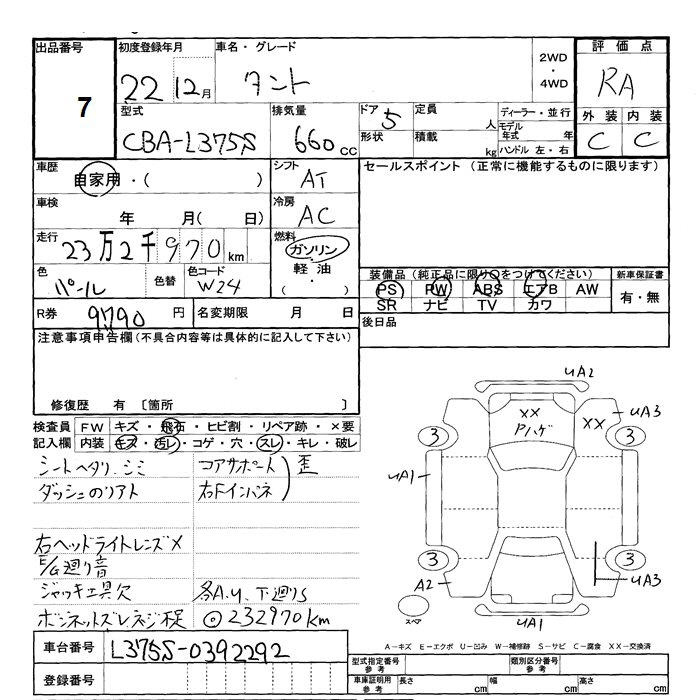 出品番号 初度登録年月 車名・グレード 2WD・4WD 評価点
7 22 12月 タント RA
型式 排気量 ドア 定員 ディーラー・並行 外装 内装
CBA-L375S 660cc 5 人 モデル年式 年 C C
形状 積載 kg ハンドル 左・右
車歴 シフト セールスポイント (正常に機能するものに限ります)
自家用・( ) AT
車検 冷房
年 月( 日) AC
走行 燃料
23万2千970km ガソリン
軽油
( ・ )
色 色替 色コード 装備品 (純正品に限り○をつけてください) 新車保証書
パール W24 PS PW ABS エアB AW 有・無
SR ナビ TV カワ
R券 9,790 円 名変期限 月 日 後日品
注意事項申告欄(不具合内容等は具体的に記入して下さい)
修復歴 有 〔箇所 〕
検査員 FW キズ・飛石・ヒビ割・リペア跡・×要
記入欄 内装 キズ・汚レ・コゲ・穴・スレ・キレ・破レ
シートヘタリ、シミ コアサポート 歪
ダッシュのリアト 右Fインパネ
右ヘッドライトレンズ×
E/G廻り音
ジャッキ工具欠 各A.U、下廻りS
ボンネットズレネジ欠 ◎232970km
UA2
XX
Pハゲ
XX UA3
3 3
UA1 UA1
3 3
A2 UA3
スペア
UA1
A-キズ E-エクボ U-凹み W-補修跡 S-サビ C-腐食 XX-交換済
車台番号 L375S-0392292
登録番号
型式指定番号 参考 類別区分番号 参考
車庫証明用 参考 長さ cm 幅 cm 高さ cm